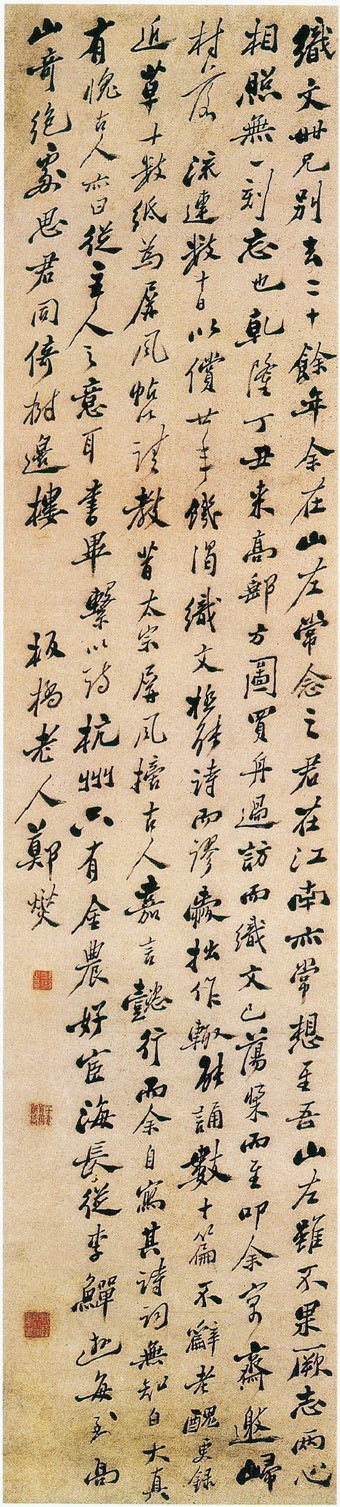 織文世兄別去二十餘年余在山左常念之君在江南亦常想至吾山左雖不果厥志兩心
相照無一刻忘也乾隆丁丑來高郵方圖買舟過訪而織文已蕩槳而至叩余寓齋邀歸
村落流連數十日以償廿年饑渴織文極能詩而謬愛拙作輒能誦數十篇不辭老醜更錄
近草十數紙為屏風帖以請教昔太宗屏風摭古人嘉言懿行而余自寫其詩詞無知自大真
有愧古人亦曰從主人之意耳書畢繫以詩杭州只有金農好宦海長從李鱓遊每到高
山奇絕處思君同倚樹邊樓
板橋老人鄭燮